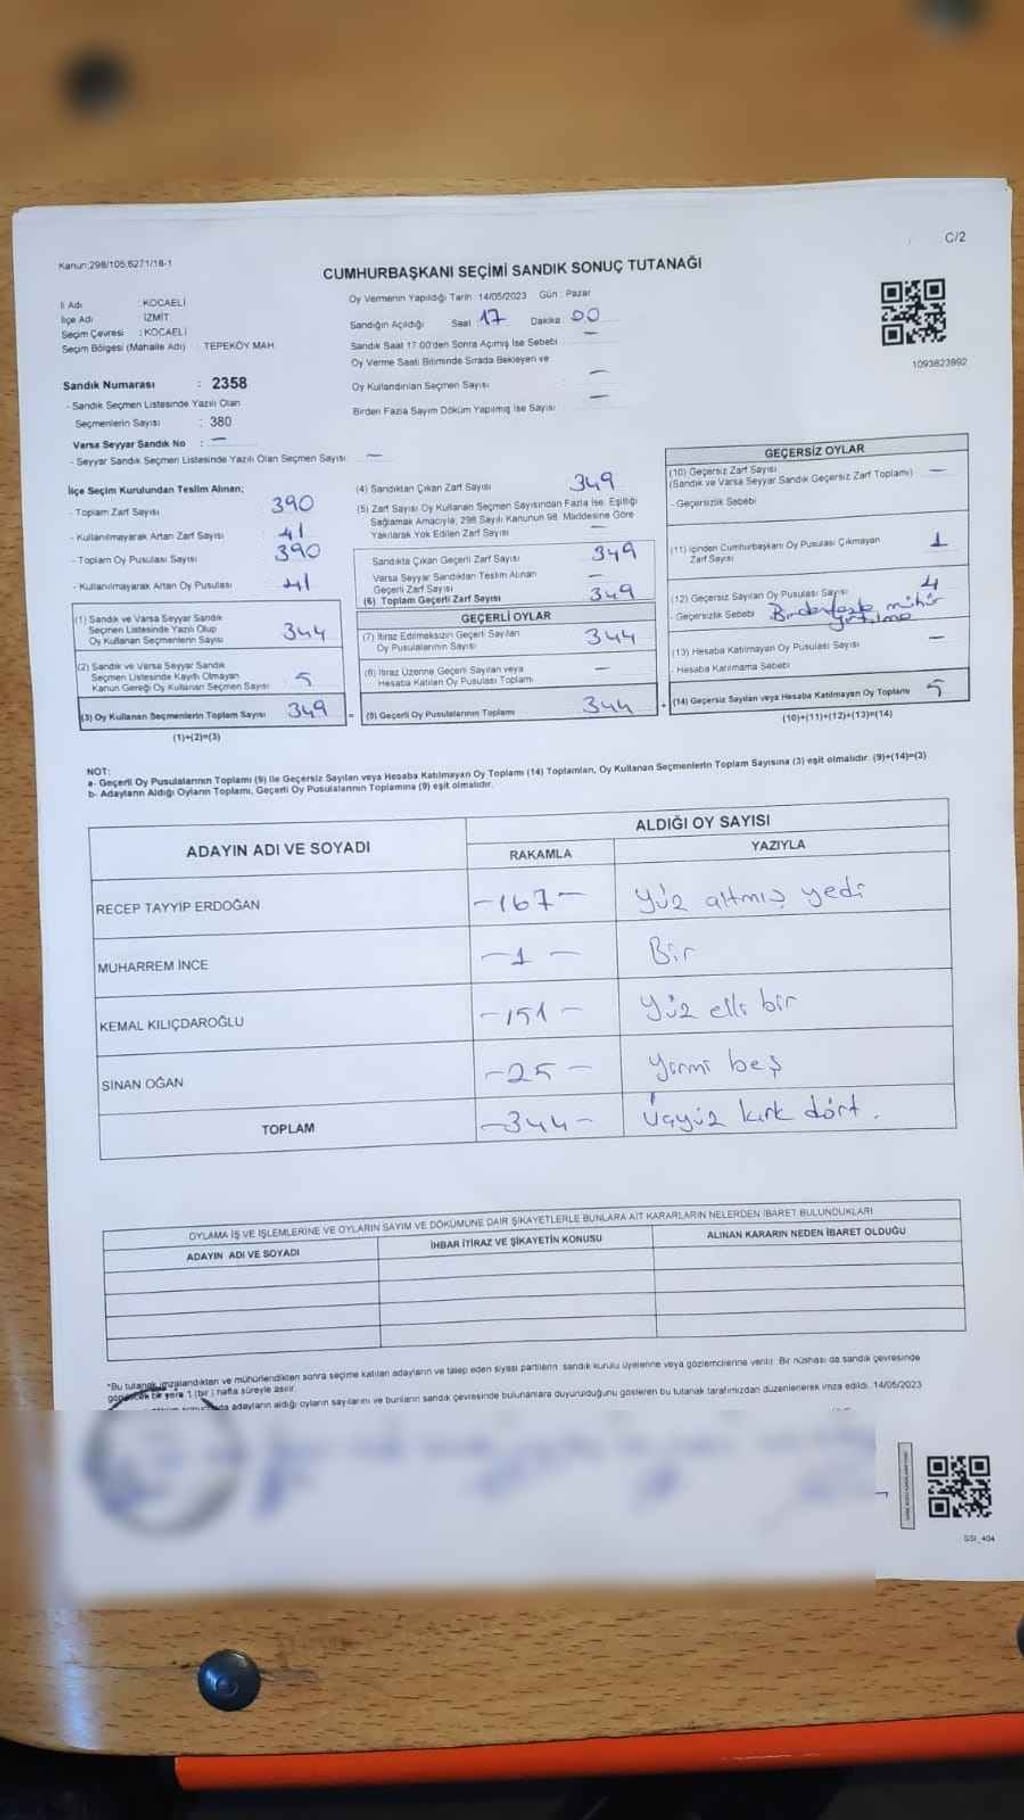 C/2
Kanun:298/105,6271/18-1
CUMHURBAŞKANI SEÇİMİ SANDIK SONUÇ TUTANAĞI
İl Adı : KOCAELİ
İlçe Adı : İZMİT
Seçim Çevresi : KOCAELİ
Seçim Bölgesi (Mahalle Adı) TEPEKÖY MAH.
Sandık Numarası : 2358
- Sandık Seçmen Listesinde Yazılı Olan
Seçmenlerin Sayısı : 380
Varsa Seyyar Sandık No : —
- Seyyar Sandık Seçmen Listesinde Yazılı Olan Seçmen Sayısı —
Oy Vermenin Yapıldığı Tarih : 14/05/2023 Gün : Pazar
Sandığın Açıldığı Saat 17 Dakika 00
Sandık Saat 17:00'den Sonra Açılmış İse Sebebi —
Oy Verme Saati Bitiminde Sırada Bekleyen ve
Oy Kullandırılan Seçmen Sayısı : —
Birden Fazla Sayım Döküm Yapılmış İse Sayısı —
1093623992
İlçe Seçim Kurulundan Teslim Alınan;
- Toplam Zarf Sayısı 390
- Kullanılmayarak Artan Zarf Sayısı 41
- Toplam Oy Pusulası Sayısı 390
- Kullanılmayarak Artan Oy Pusulası 41
(1) Sandık ve Varsa Seyyar Sandık
Seçmen Listesinde Yazılı Olup
Oy Kullanan Seçmenlerin Sayısı 344
(2) Sandık ve Varsa Seyyar Sandık
Seçmen Listesinde Kayıtlı Olmayan
Kanun Gereği Oy Kullanan Seçmen Sayısı 5
(3) Oy Kullanan Seçmenlerin Toplam Sayısı 349
(1)+(2)=(3)
(4) Sandıktan Çıkan Zarf Sayısı 349
(5) Zarf Sayısı Oy Kullanan Seçmen Sayısından Fazla İse; Eşitliği
Sağlamak Amacıyla, 298 Sayılı Kanunun 98. Maddesine Göre
Yakılarak Yok Edilen Zarf Sayısı —
Sandıkta Çıkan Geçerli Zarf Sayısı 349
Varsa Seyyar Sandıktan Teslim Alınan
Geçerli Zarf Sayısı —
(6) Toplam Geçerli Zarf Sayısı 349
GEÇERLİ OYLAR
(7) İtiraz Edilmeksizin Geçerli Sayılan
Oy Pusulalarının Sayısı 344
(8) İtiraz Üzerine Geçerli Sayılan veya
Hesaba Katılan Oy Pusulası Toplamı —
= (9) Geçerli Oy Pusulalarının Toplamı 344
GEÇERSİZ OYLAR
(10) Geçersiz Zarf Sayısı
(Sandık ve Varsa Seyyar Sandık Geçersiz Zarf Toplamı) —
- Geçersizlik Sebebi
(11) İçinden Cumhurbaşkanı Oy Pusulası Çıkmayan
Zarf Sayısı 1
(12) Geçersiz Sayılan Oy Pusulası Sayısı 4
- Geçersizlik Sebebi Birden fazla mühür
yırtılma
(13) Hesaba Katılmayan Oy Pusulası Sayısı —
- Hesaba Katılmama Sebebi
+ (14) Geçersiz Sayılan veya Hesaba Katılmayan Oy Toplamı 5
(10)+(11)+(12)+(13)=(14)
NOT:
a- Geçerli Oy Pusulalarının Toplamı (9) ile Geçersiz Sayılan veya Hesaba Katılmayan Oy Toplamı (14) Toplamları, Oy Kullanan Seçmenlerin Toplam Sayısına (3) eşit olmalıdır. (9)+(14)=(3)
b- Adayların Aldığı Oyların Toplamı, Geçerli Oy Pusulalarının Toplamına (9) eşit olmalıdır.
ADAYIN ADI VE SOYADI ALDIĞI OY SAYISI
RAKAMLA YAZIYLA
RECEP TAYYİP ERDOĞAN -167- Yüz altmış yedi
MUHARREM İNCE -1- Bir
KEMAL KILIÇDAROĞLU -151- Yüz elli bir
SİNAN OĞAN -25- Yirmi beş
TOPLAM -344- Üçyüz kırk dört.
OYLAMA İŞ VE İŞLEMLERİNE VE OYLARIN SAYIM VE DÖKÜMÜNE DAİR ŞİKAYETLERLE BUNLARA AİT KARARLARIN NELERDEN İBARET BULUNDUKLARI
ADAYIN ADI VE SOYADI İHBAR İTİRAZ VE ŞİKAYETİN KONUSU ALINAN KARARIN NEDEN İBARET OLDUĞU
*Bu tutanak imzalandıktan ve mühürlendikten sonra seçime katılan adayların ve talep eden siyasi partilerin sandık kurulu üyelerine veya gözlemcilerine verilir. Bir nüshası da sandık çevresinde
görülecek bir yere 1 (bir) hafta süreyle asılır.
adayların aldığı oyların sayılarını ve bunların sandık çevresinde bulunanlara duyurulduğunu gösteren bu tutanak tarafımızdan düzenlenerek imza edildi. 14/05/2023
GSI_404